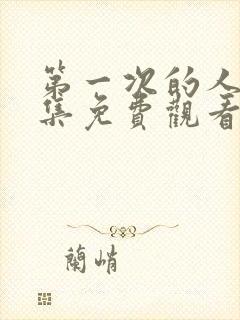 第一次的人
集免費觀看
蘭峭